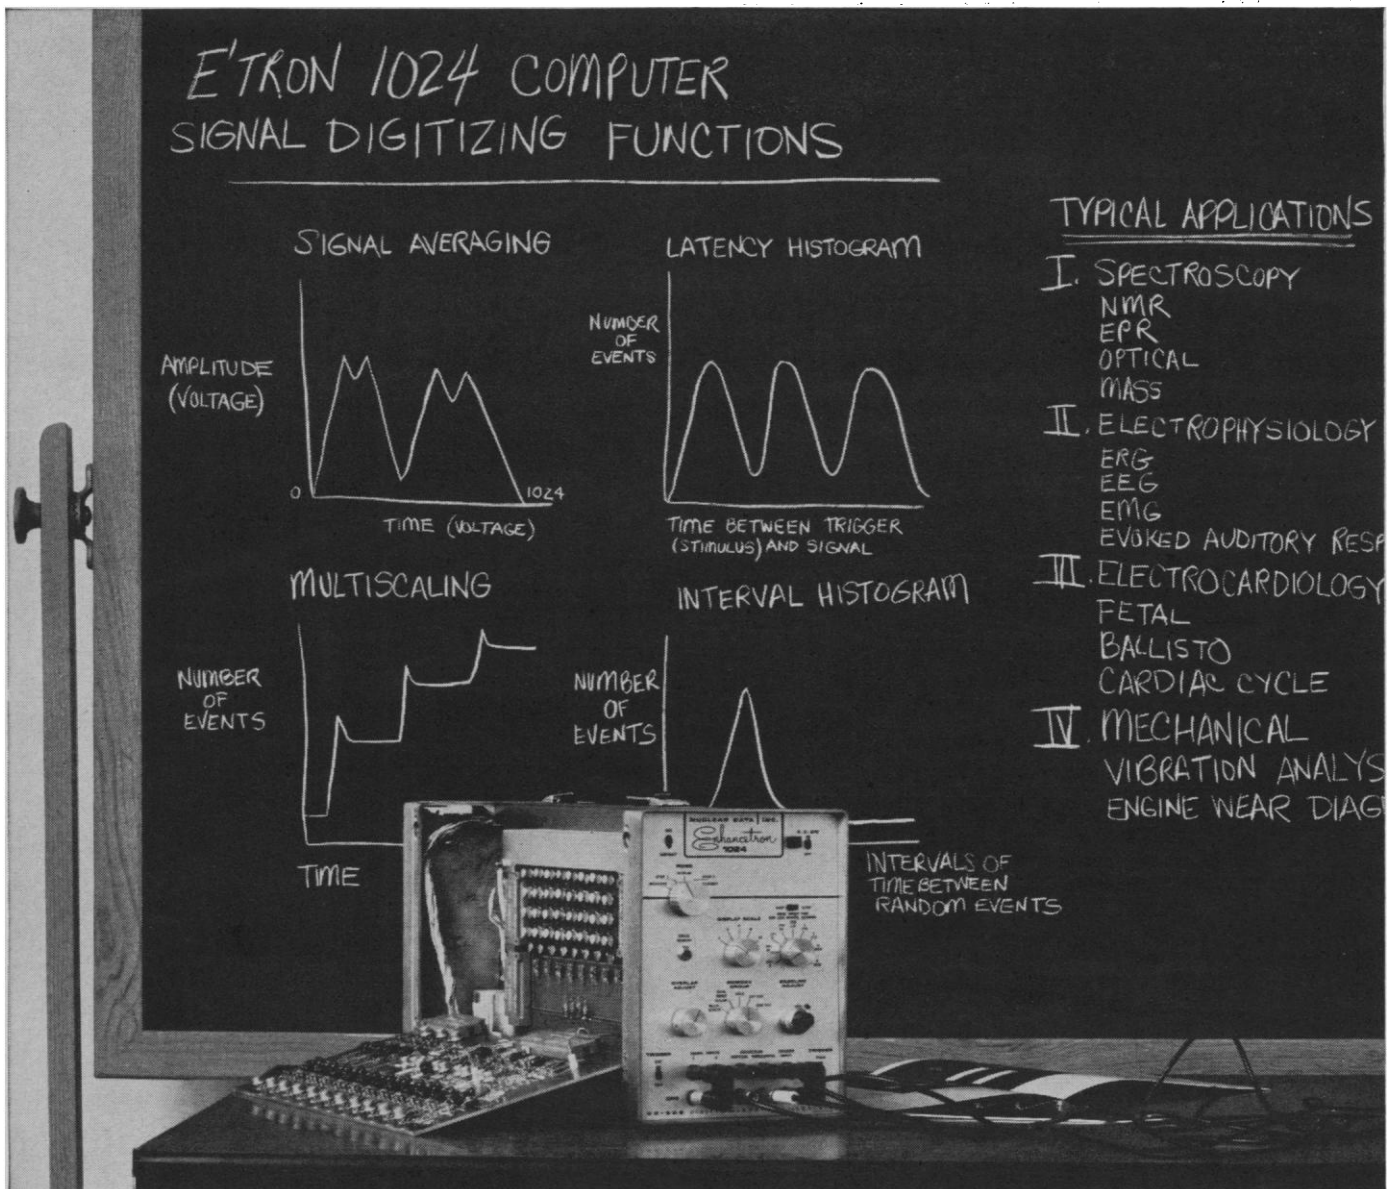 E'TRON 1024 COMPUTER
SIGNAL DIGITIZING FUNCTIONS
SIGNAL AVERAGING
AMPLITUDE
(VOLTAGE)
0
1024
TIME (VOLTAGE)
LATENCY HISTOGRAM
NUMBER
OF
EVENTS
TIME BETWEEN TRIGGER
(STIMULUS) AND SIGNAL
MULTISCALING
NUMBER
OF
EVENTS
TIME
INTERVAL HISTOGRAM
NUMBER
OF
EVENTS
INTERVALS OF
TIME BETWEEN
RANDOM EVENTS
TYPICAL APPLICATIONS
I. SPECTROSCOPY
NMR
EPR
OPTICAL
MASS
II. ELECTROPHYSIOLOGY
ERG
EEG
EMG
EVOKED AUDITORY RESP
III. ELECTROCARDIOLOGY
FETAL
BALLISTO
CARDIAC CYCLE
IV. MECHANICAL
VIBRATION ANALYS
ENGINE WEAR DIAG
NUCLEAR DATA INC.
Enhancetron
1024
DISPLAY SCALE
OVERLAP
ADJUST
TRIGGER